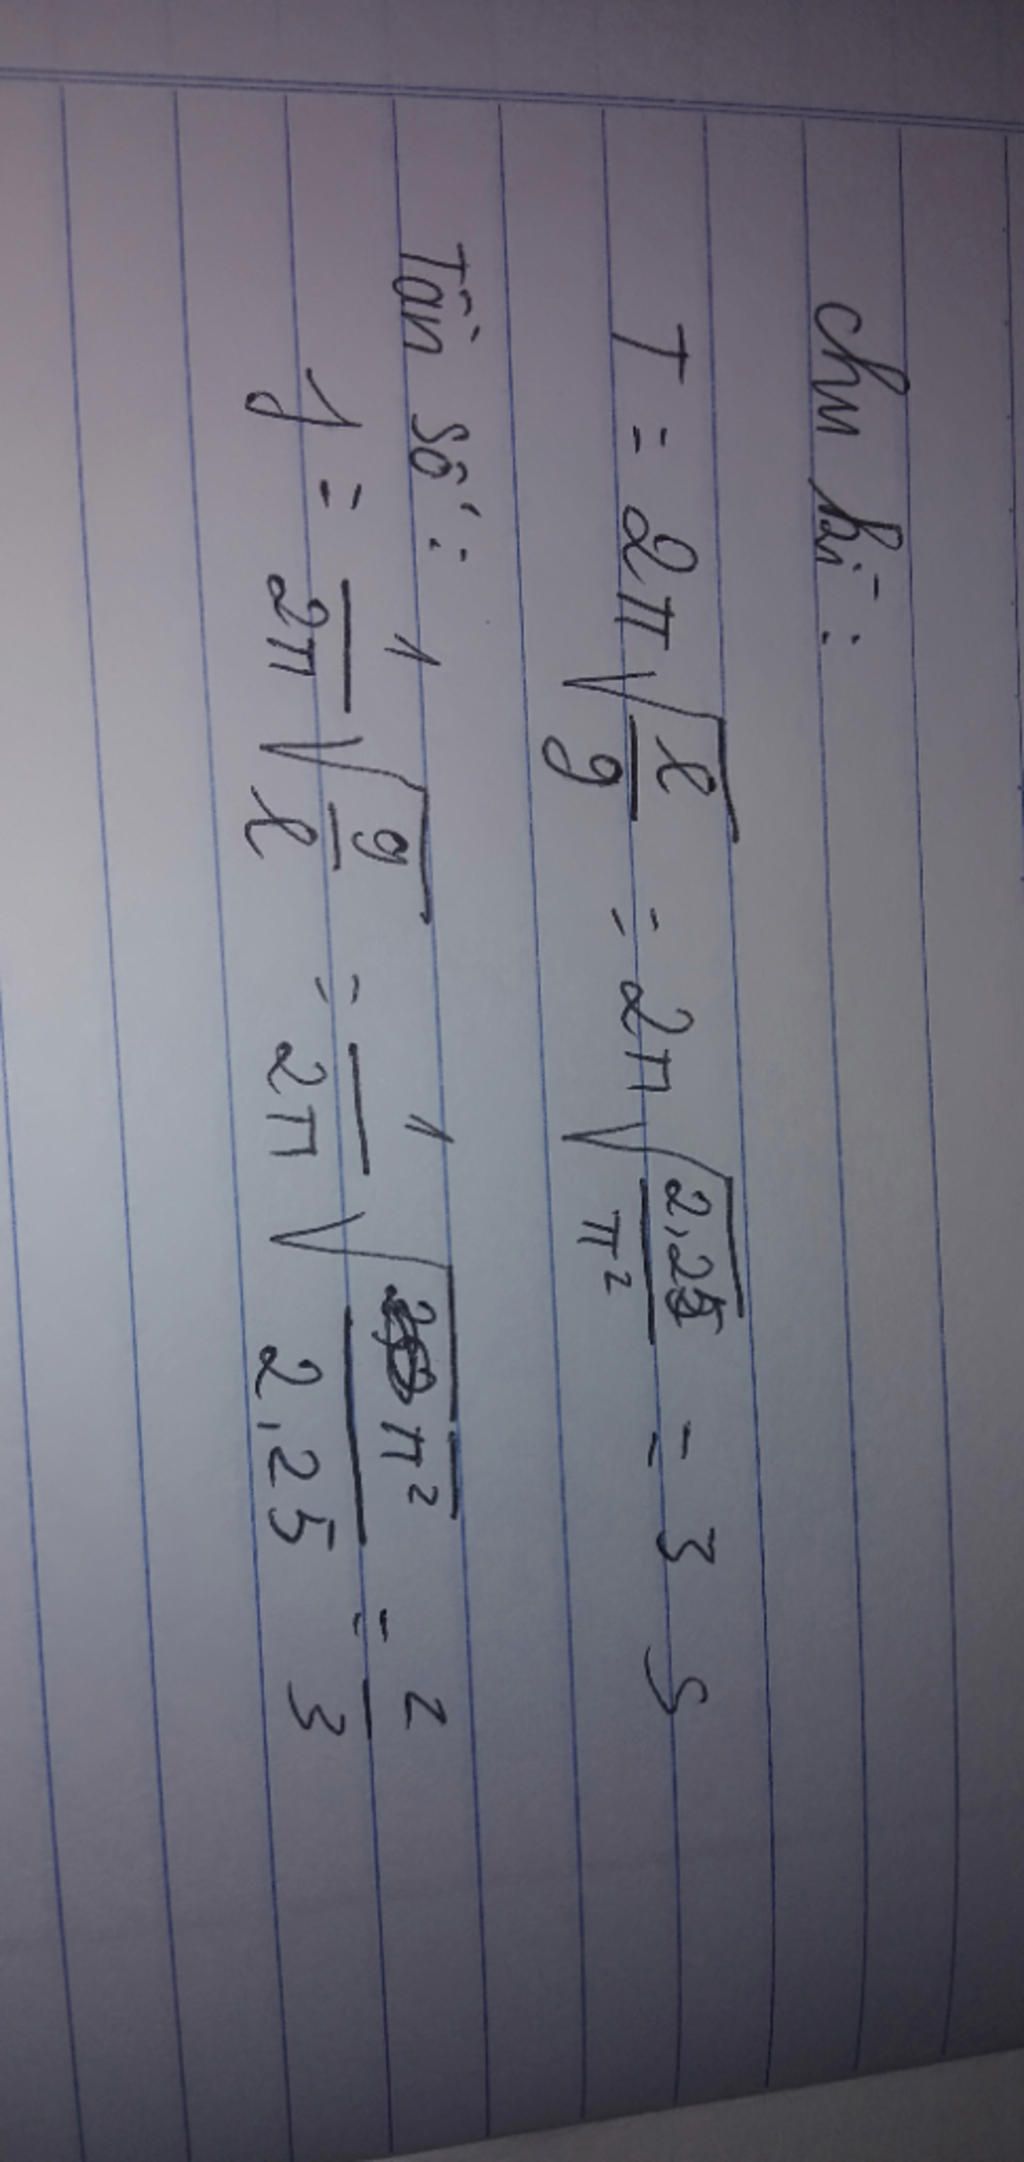 Chu kì :
T = 2π√(l/g) = 2π√(2,25/π²) = 3 s
Tần số :
f = 1/2π √(g/l) = 1/2π √(π²/2,25) = 2/3